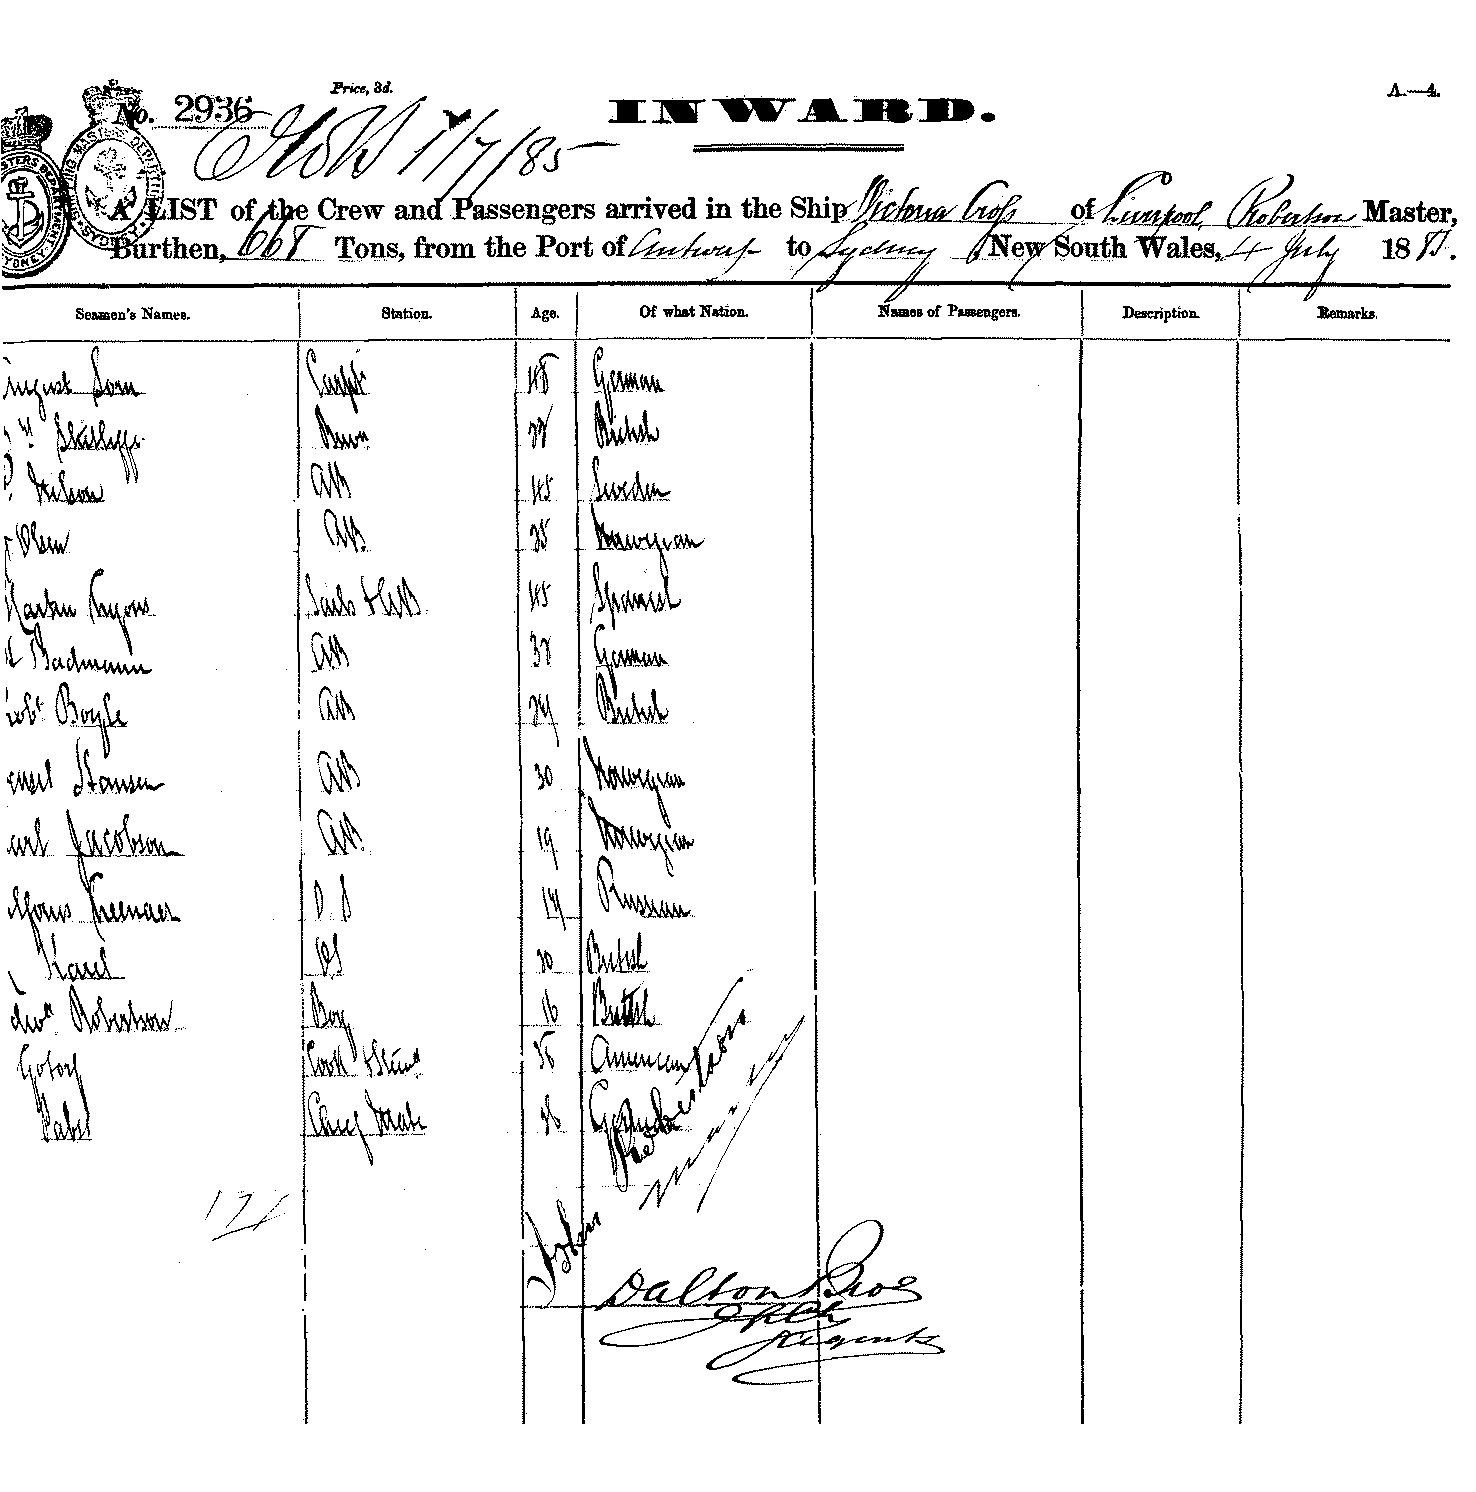 Price, 3d.
A.—4.
No. 2936
INWARD.
1/7/85
A LIST of the Crew and Passengers arrived in the Ship Victoria Cross of Liverpool, Robertson Master,
Burthen, 668 Tons, from the Port of Antwerp to Sydney New South Wales, 4 July 1885.
Seamen's Names. Station. Age. Of what Nation. Names of Passengers. Description. Remarks.
August Sorn Carpt 48 German
British
Nilson AB 45 Sweden
Olsen AB 25 Norwegian
Sails & AB 45 Spanish
Badmann AB German
Robt Boyle AB British
Hansen AB 30 Norwegian
Carl Jacobson AB 19 Norwegian
OS Russian
OS British
Edwd Robertson Boy 16 British
Cook & Stewd American
Pabst Chief Mate German
Robertson
Master
Dalton Bros
Agents